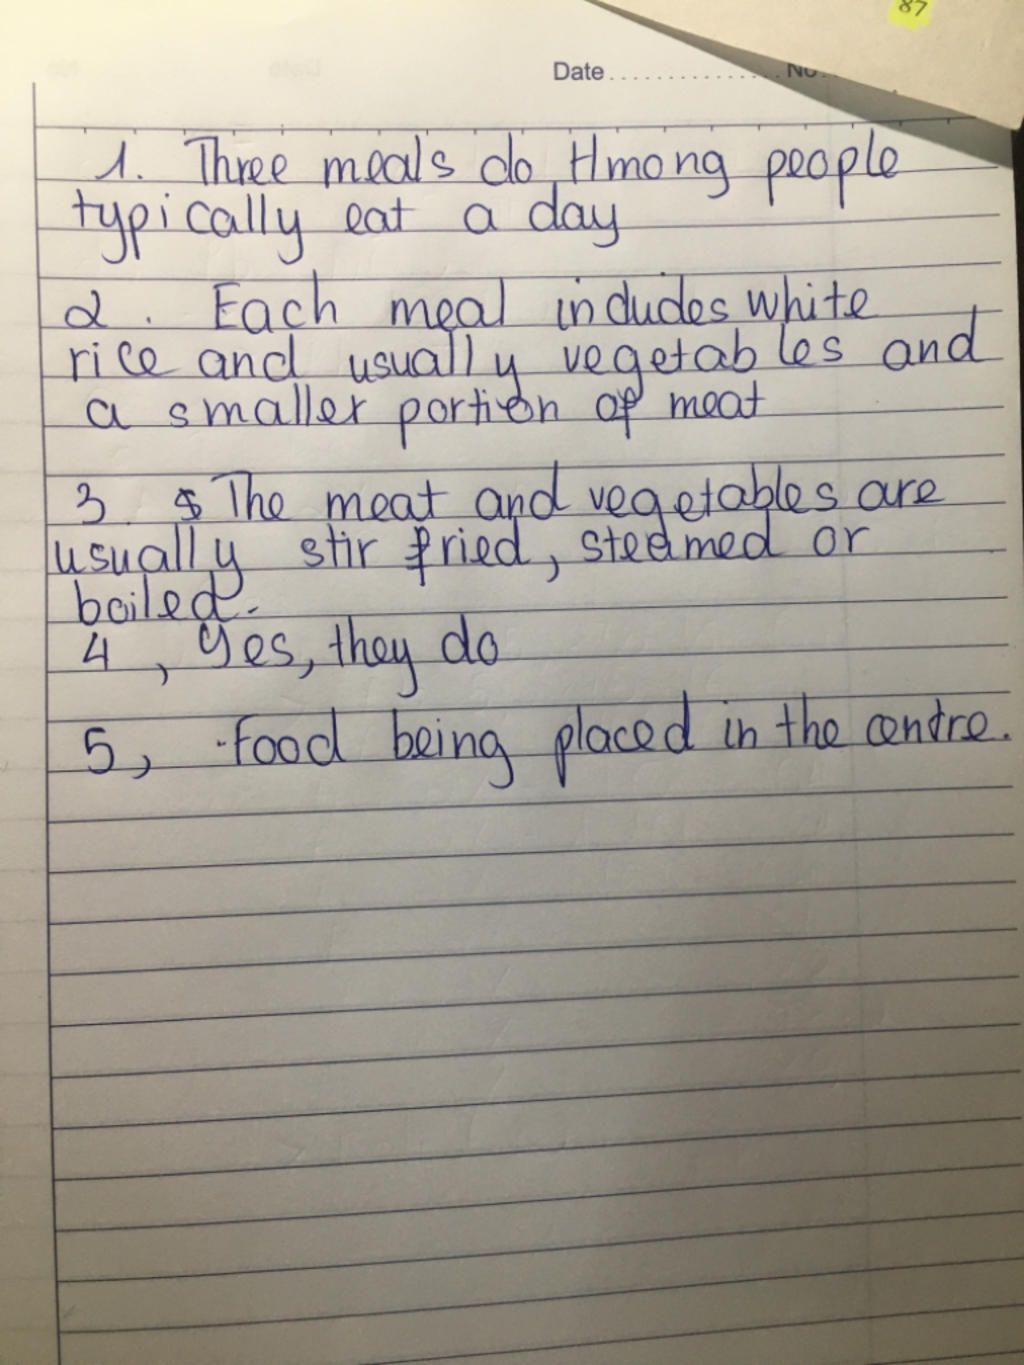 87
Date
No
1. Three meals do Hmong people
typically eat a day
2. Each meal includes white
rice and usually vegetables and
a smaller portion of meat
3 The meat and vegetables are
usually stir fried, steamed or
boiled.
4, Yes, they do
5, Food being placed in the centre.